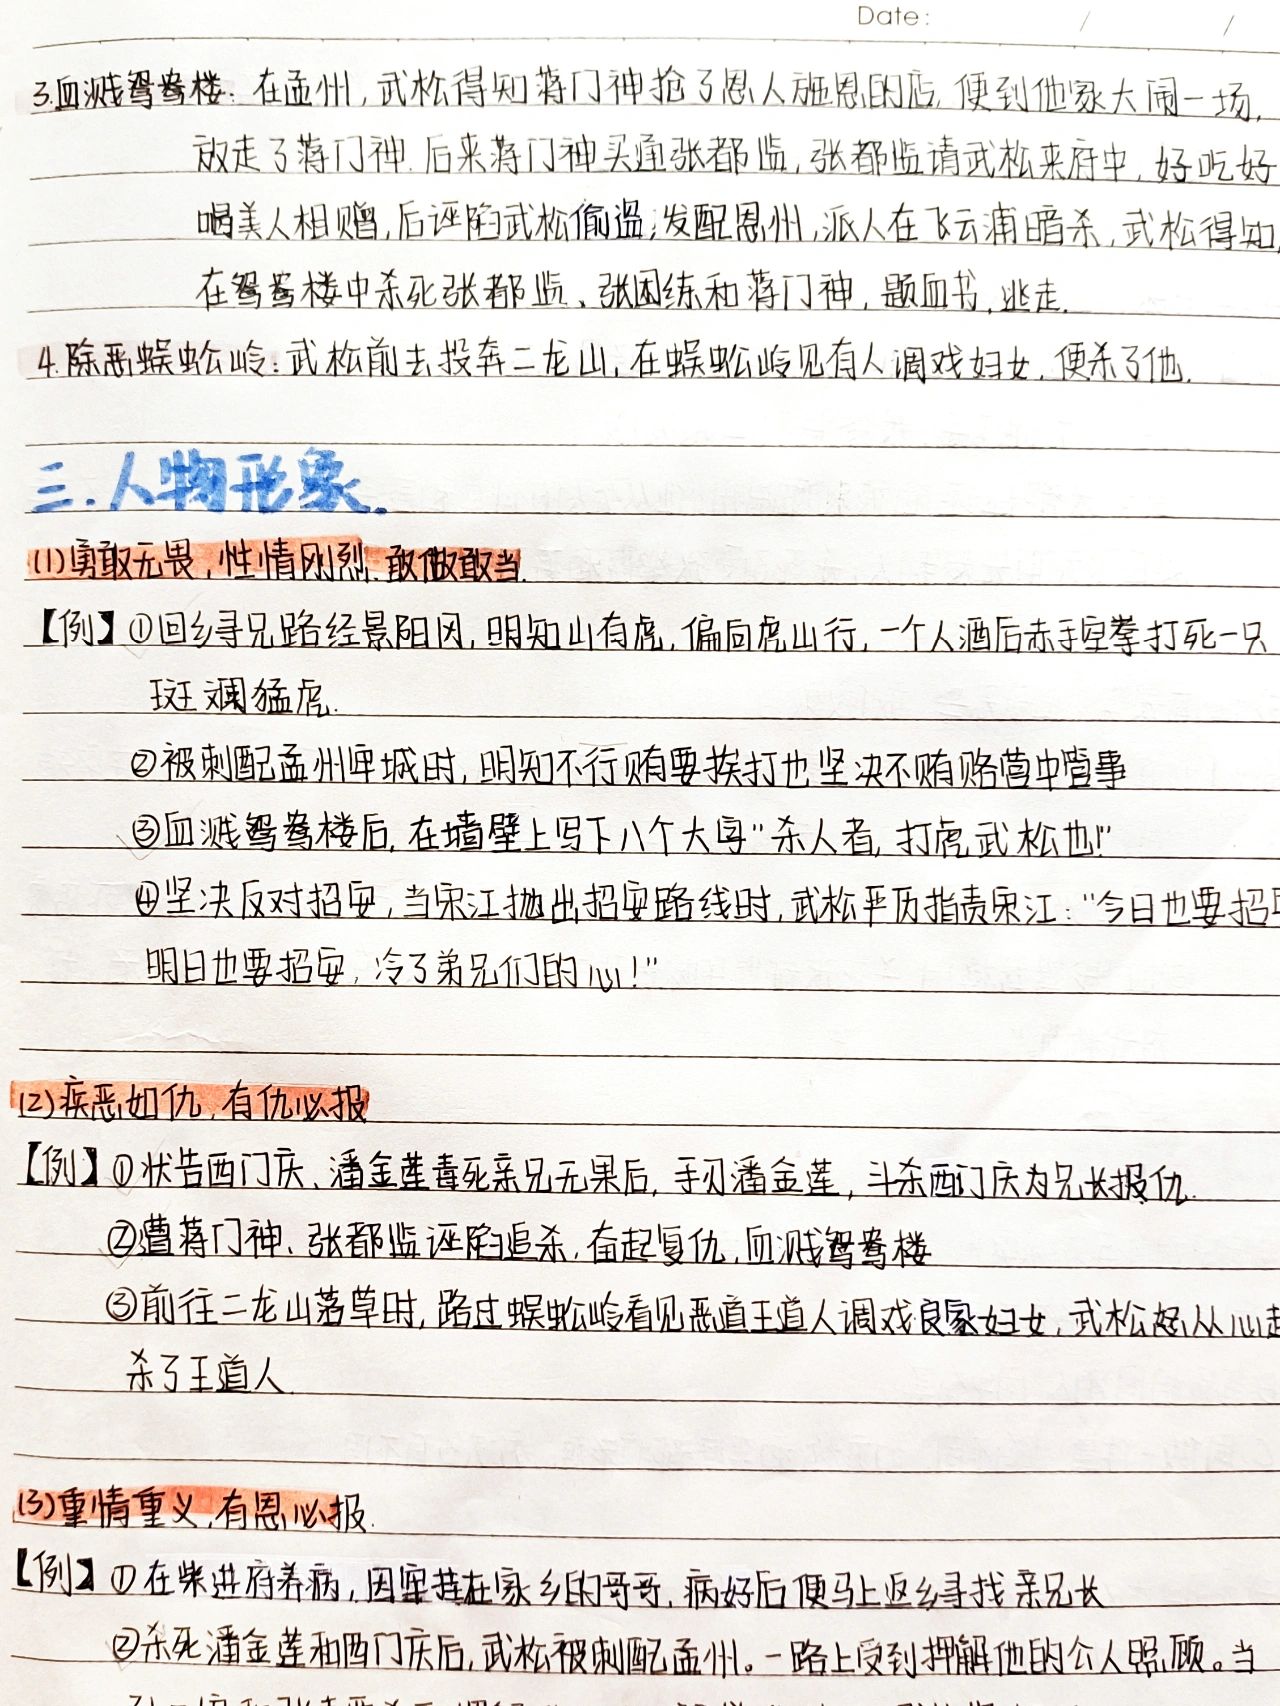 Date: / /
3.血溅鸳鸯楼：在孟州，武松得知蒋门神抢了恩人施恩的店，便到他家大闹一场，
放走了蒋门神.后来蒋门神买通张都监，张都监请武松来府中，好吃好
喝美人相赠，后诬陷武松偷盗，发配恩州，派人在飞云浦暗杀，武松得知，
在鸳鸯楼中杀死张都监、张团练和蒋门神，题血书，逃走.
4.除恶蜈蚣岭：武松前去投奔二龙山，在蜈蚣岭见有人调戏妇女，便杀了他.
三.人物形象.
(1)勇敢无畏，性情刚烈.敢做敢当.
【例】①回乡寻兄路经景阳冈，明知山有虎，偏向虎山行，一个人酒后赤手空拳打死一只
斑斓猛虎.
②被刺配孟州牢城时，明知不行贿要挨打也坚决不贿赂营中管事
③血溅鸳鸯楼后，在墙壁上写下八个大字"杀人者，打虎武松也！"
④坚决反对招安，当宋江抛出招安路线时，武松平历指责宋江："今日也要招安
明日也要招安，冷了弟兄们的心！"
(2)疾恶如仇，有仇必报
【例】①状告西门庆、潘金莲毒死亲兄无果后，手刃潘金莲，斗杀西门庆为兄长报仇.
②遭蒋门神、张都监诬陷追杀，奋起复仇，血溅鸳鸯楼
③前往二龙山落草时，路过蜈蚣岭看见恶道王道人调戏良家妇女，武松怒从心起
杀了王道人
(3)重情重义，有恩必报.
【例】①在柴进府养病，因牵挂在家乡的哥哥，病好后便马上返乡寻找亲兄长
②杀死潘金莲和西门庆后，武松被刺配孟州。一路上受到押解他的公人照顾。当